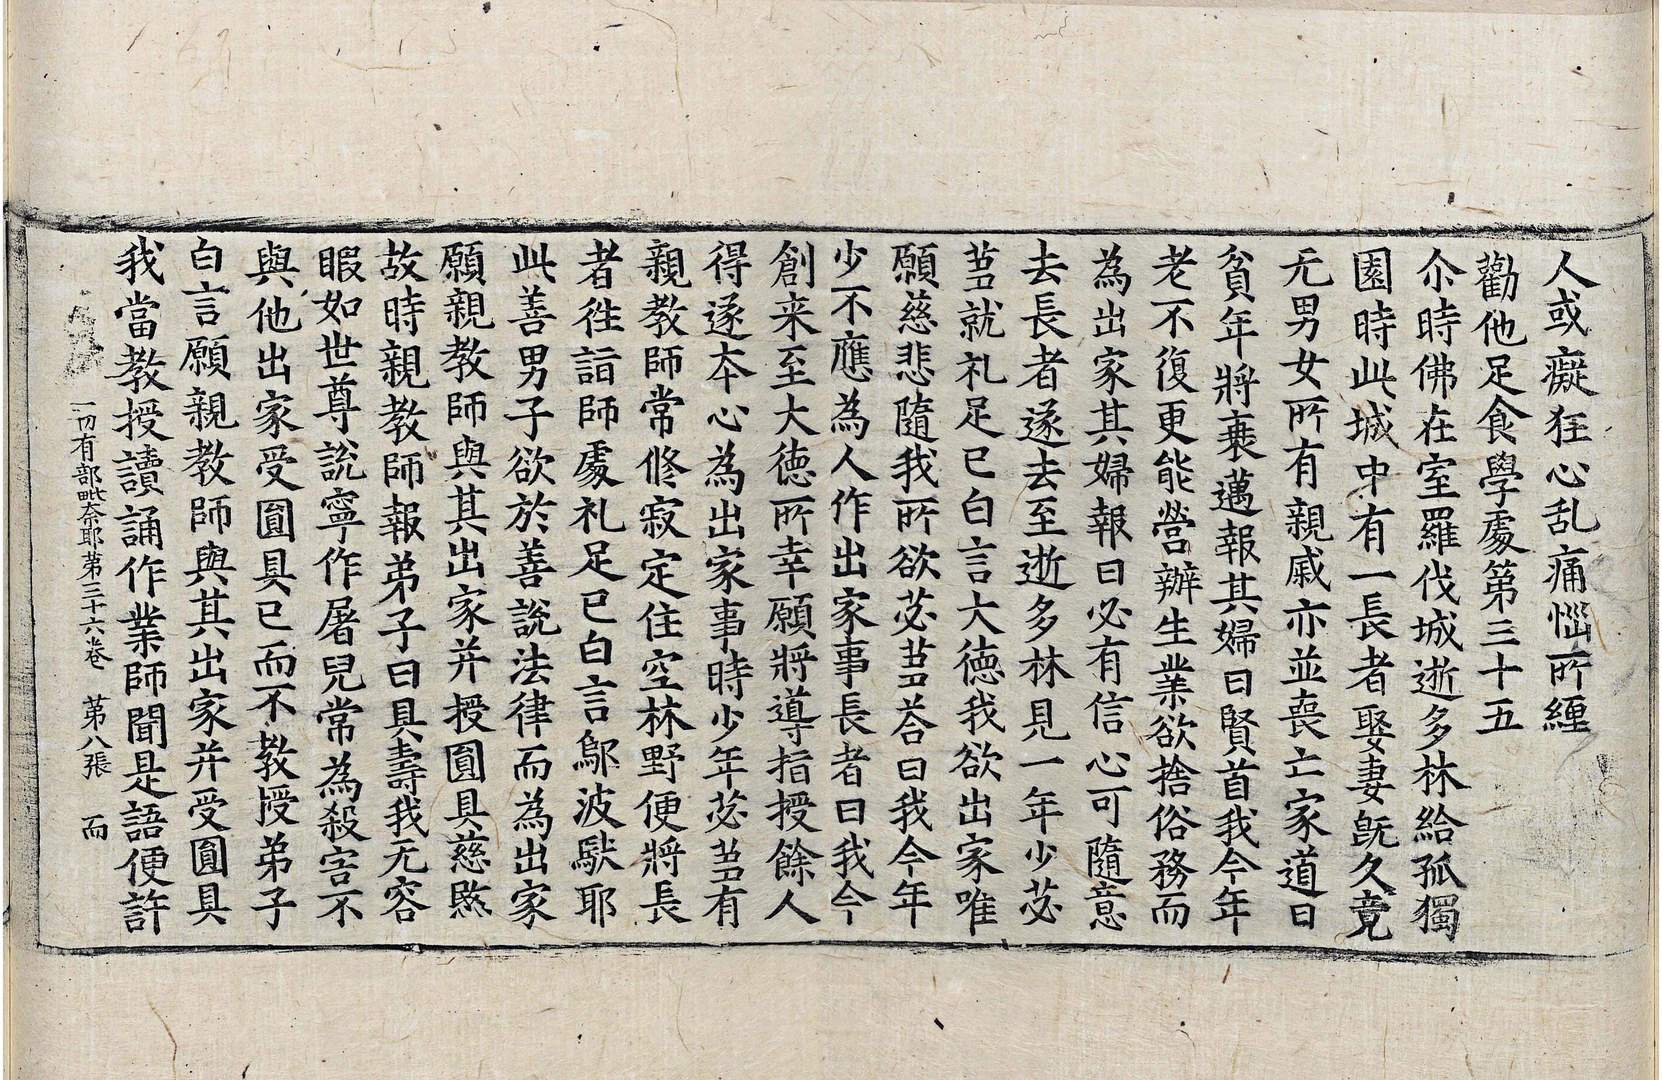 人或癡狂心乱痛惱所纏
勸他足食學處第三十五
尒時佛在室羅伐城逝多林給孤獨
園時此城中有一長者娶妻旣久竟
无男女所有親戚亦並喪亡家道日
貧年將衰邁報其婦曰賢首我今年
老不復更能營辦生業欲捨俗務而
為出家其婦報曰必有信心可隨意
去長者遂去至逝多林見一年少苾
蒭就礼足已白言大德我欲出家唯
願慈悲隨我所欲苾蒭荅曰我今年
少不應為人作出家事長者曰我今
創来至大德所幸願將導指授餘人
得遂夲心為出家事時少年苾蒭有
親教師常修寂定住空林野便將長
者徃詣師處礼足已白言鄔波馱耶
此善男子欲於善說法律而為出家
願親教師與其出家并授圓具慈愍
故時親教師報弟子曰具壽我无容
暇如世尊說寧作屠兒常為殺害不
與他出家受圓具已而不教授弟子
白言願親教師與其出家并受圓具
我當教授讀誦作業師聞是語便許
一切有部毗奈耶第三十六卷　第八張　而